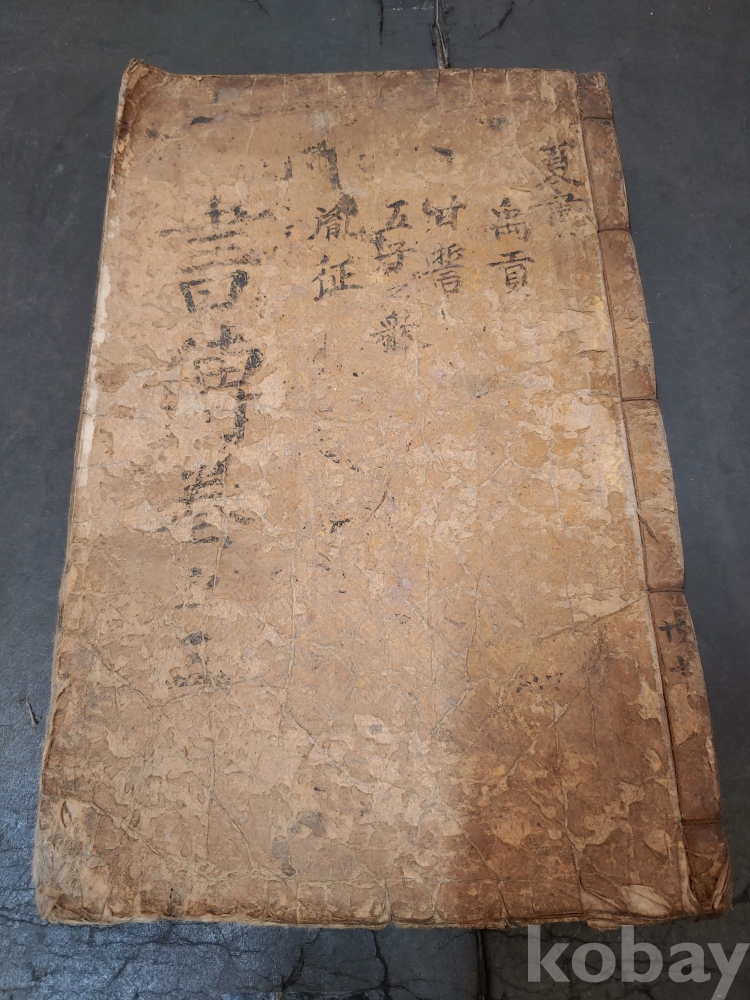 夏書
禹貢
甘誓
五子之歌
胤征
書傳卷之三
kobay